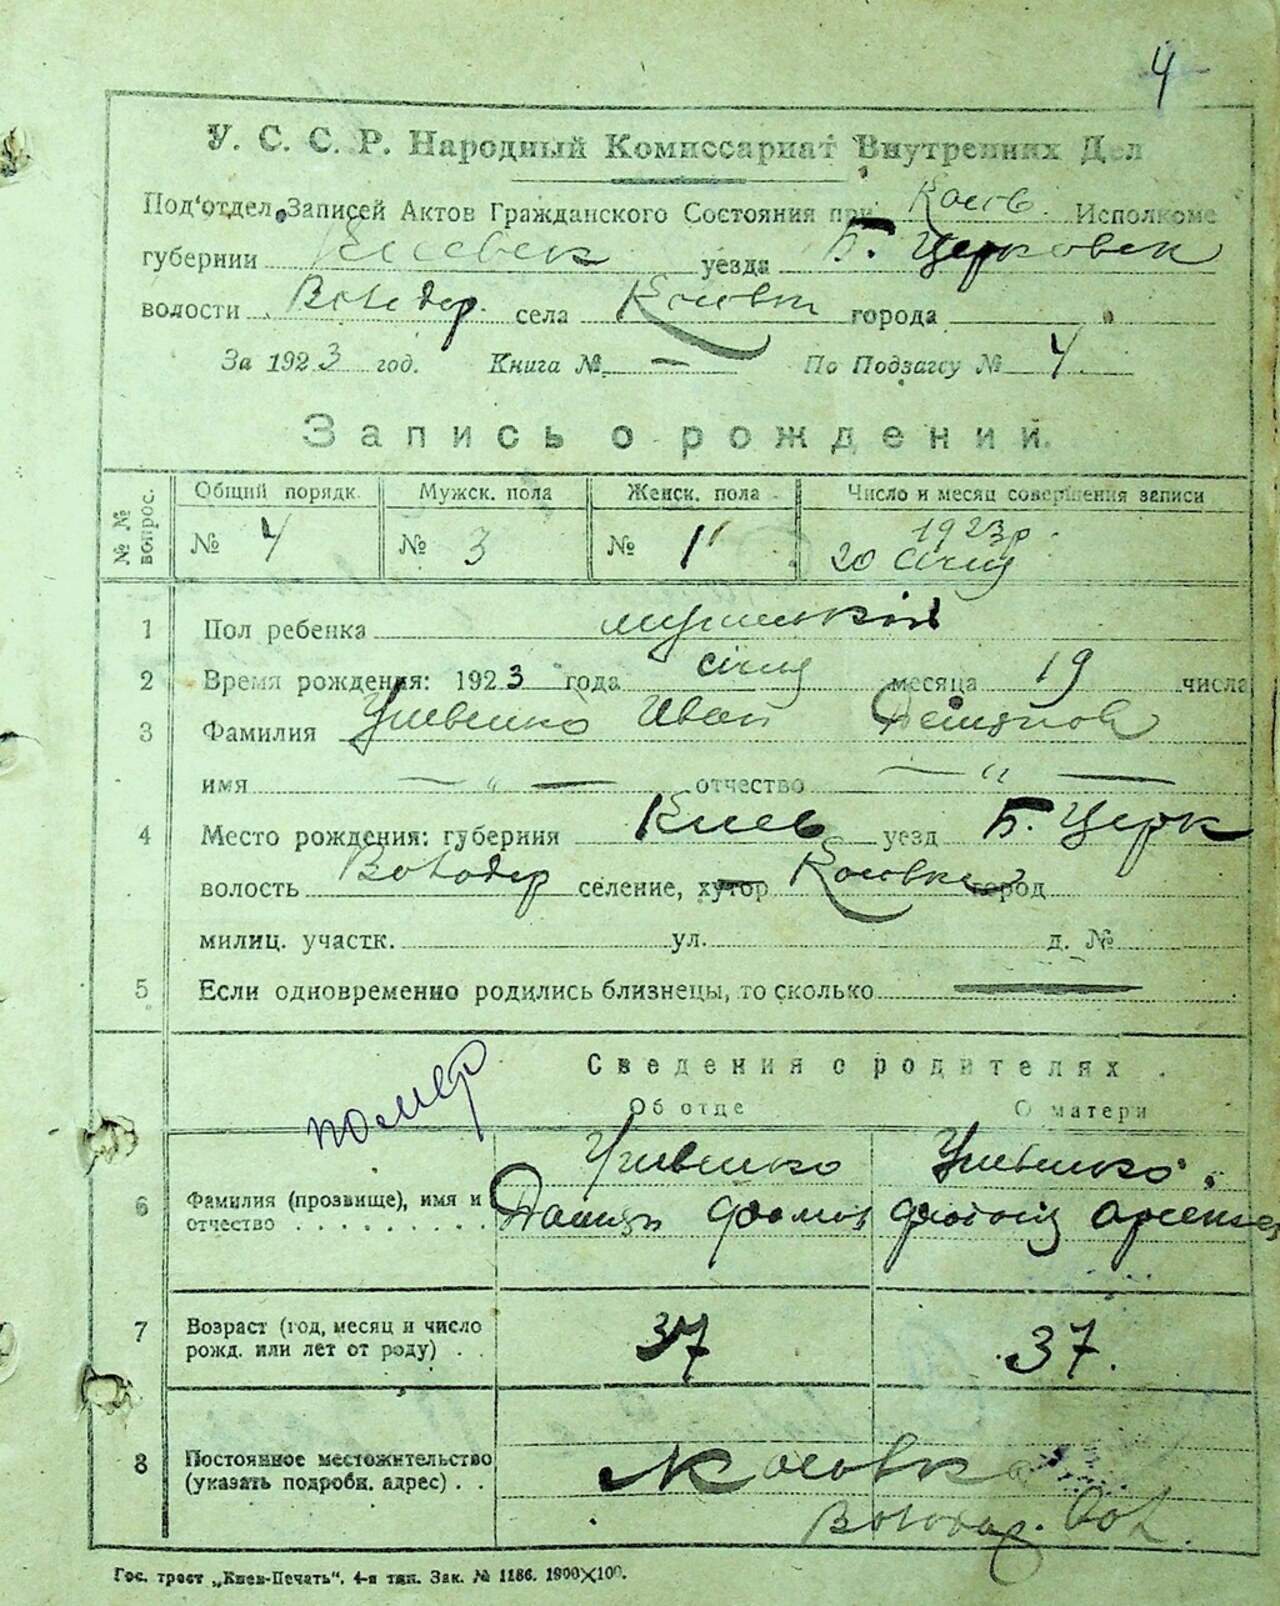 4
У. С. С. Р. Народный Комиссариат Внутренних Дел
Под'отдел Записей Актов Гражданского Состояния при Исполкоме
губернии Киевск уезда Б. Церковск
волости Володар. села города
За 1923 год. Книга № — По Подзагсу № 4
Запись о рождении.
№ № вопрос.
Общий порядк. Мужск. пола Женск. пола Число и месяц совершения записи
№ 4 № 3 № 1 1923 р.
20 січня
1 Пол ребенка
2 Время рождения: 1923 года січня месяца 19 числа
3 Фамилия Иван
имя — „ — отчество — „ —
4 Место рождения: губерния Киев уезд Б. Церк
волость Володар селение, хутор город
милиц. участк. ул. д. №
5 Если одновременно родились близнецы, то сколько —
помер
Сведения о родителях.
Об отце О матери
6 Фамилия (прозвище), имя и
отчество
Арсеньев
7 Возраст (год, месяц и число
рожд. или лет от роду) . . 37 37.
8 Постоянное местожительство
(указать подробн. адрес) . .
Володар. Вол.
Гос. трест „Киев-Печать". 4-я тип. Зак. № 1186. 1800×100.